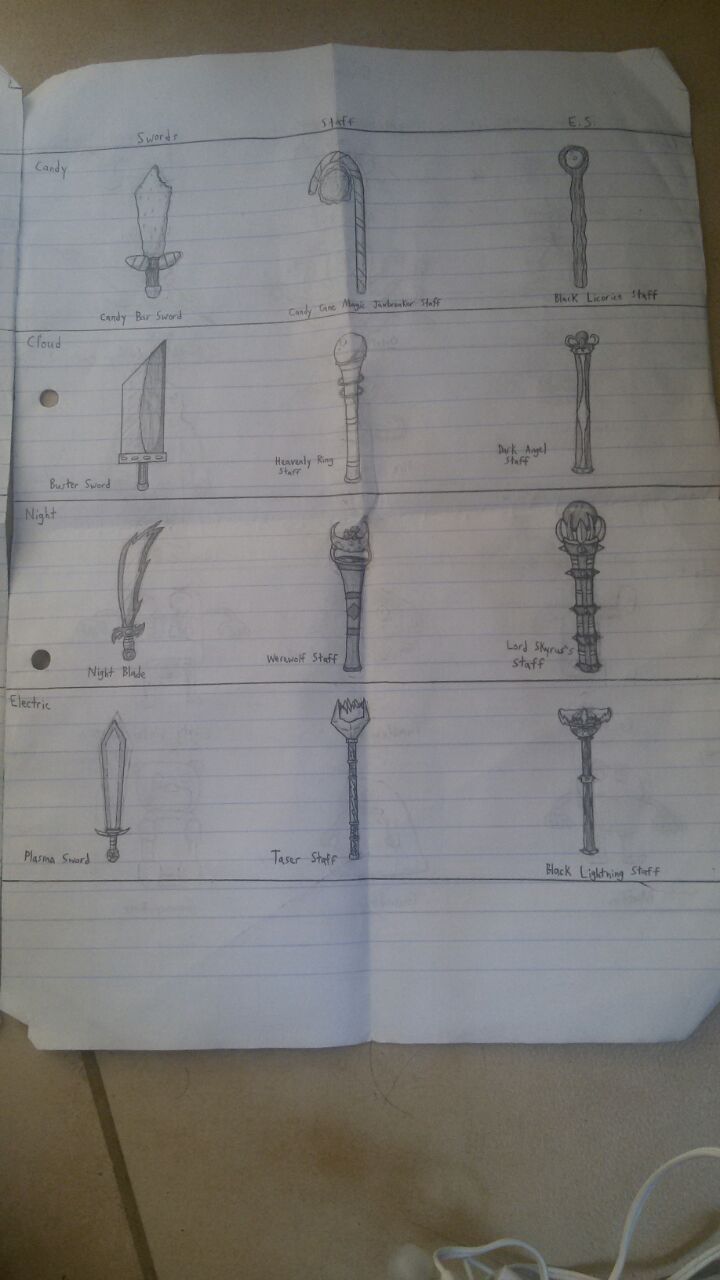 Swords
Staff
E.S.
Candy
Candy Bar Sword
Candy Cane Magic Jawbreaker Staff
Black Licorice Staff
Cloud
Buster Sword
Heavenly Ring
Staff
Dark Angel
Staff
Night
Night Blade
Werewolf Staff
Lord Skyrus's
Staff
Electric
Plasma Sword
Taser Staff
Black Lightning Staff